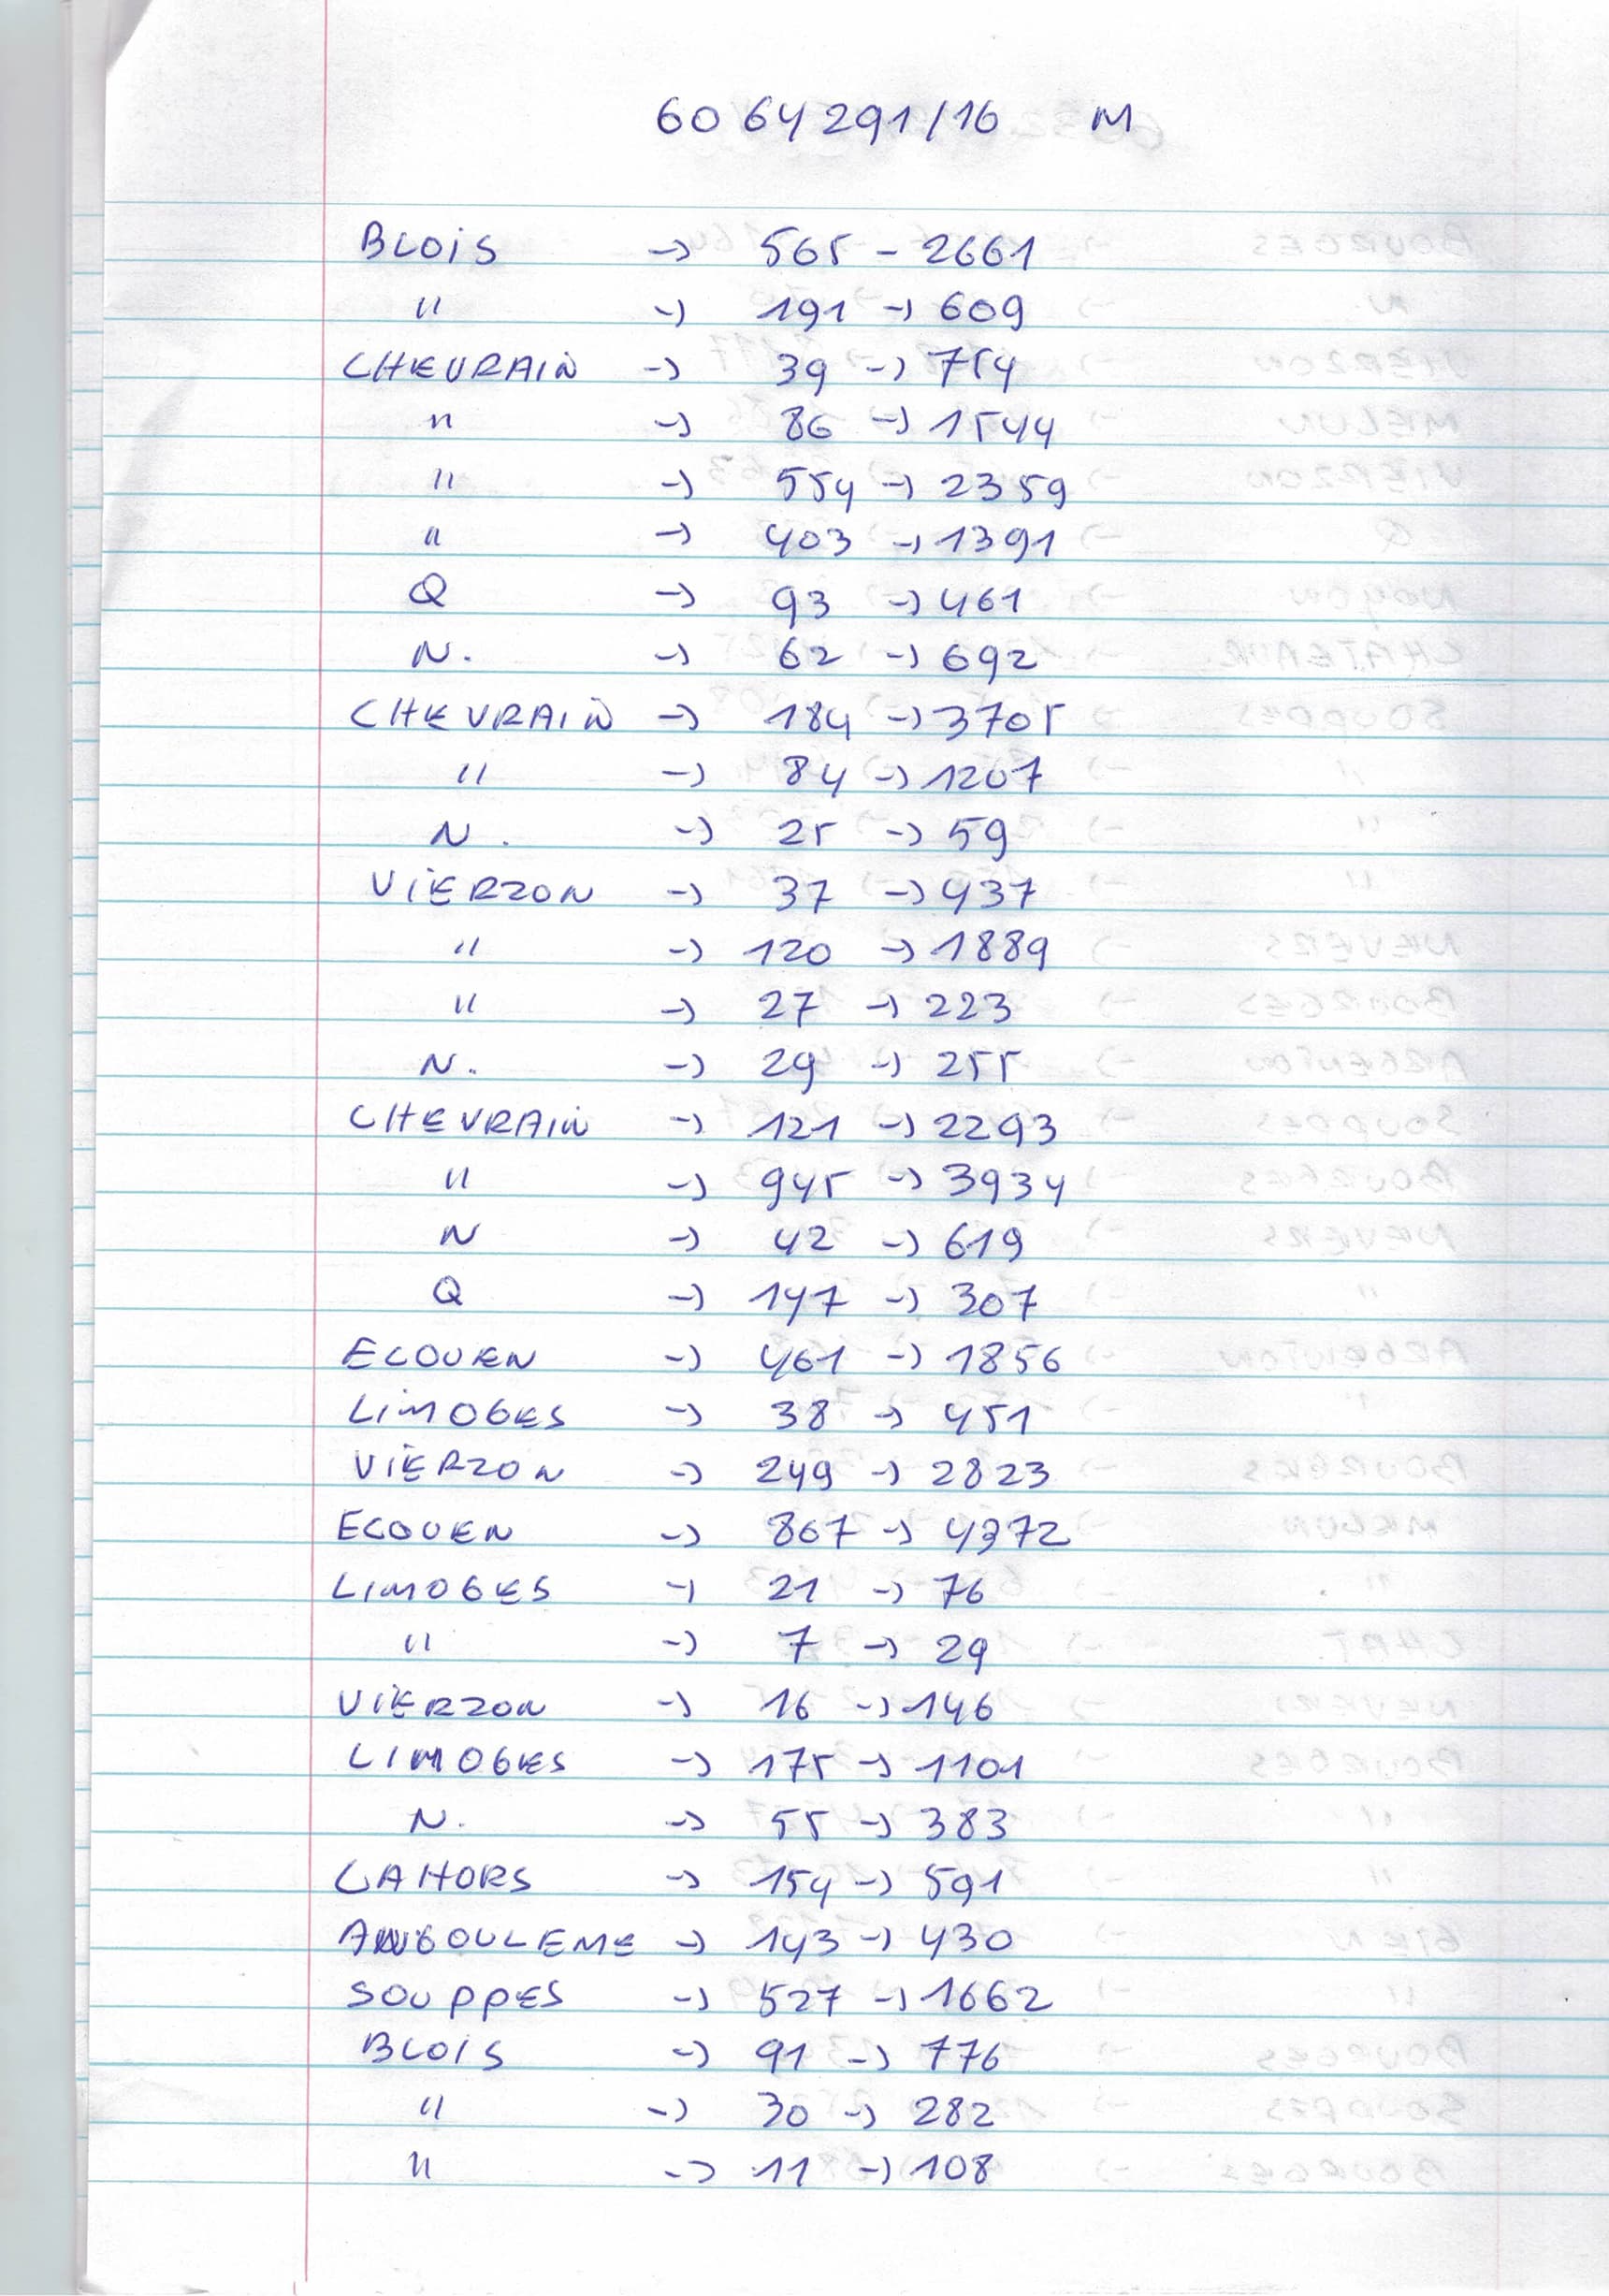 6064291/16 M
BLOIS -> 565 - 2661
" -> 191 -> 609
CHEVRAIN -> 39 -> 754
" -> 86 -> 1544
" -> 554 -> 2359
" -> 403 -> 1391
Q -> 93 -> 461
N. -> 62 -> 692
CHEVRAIN -> 184 -> 3705
" -> 84 -> 1207
N. -> 25 -> 59
VIERZON -> 37 -> 437
" -> 120 -> 1889
" -> 27 -> 223
N. -> 29 -> 255
CHEVRAIN -> 121 -> 2293
" -> 945 -> 3934
N -> 42 -> 619
Q -> 147 -> 307
ECOUEN -> 461 -> 1856
LIMOGES -> 38 -> 451
VIERZON -> 249 -> 2823
ECOUEN -> 867 -> 4372
LIMOGES -> 21 -> 76
" -> 7 -> 29
VIERZON -> 16 -> 146
LIMOGES -> 175 -> 1101
N. -> 55 -> 383
CAHORS -> 154 -> 591
ANGOULEME -> 143 -> 430
SOUPPES -> 527 -> 1662
BLOIS -> 91 -> 776
" -> 30 -> 282
" -> 11 -> 108